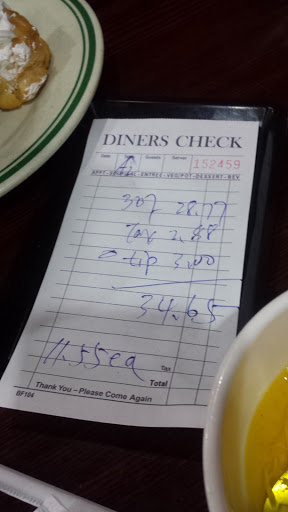 DINERS CHECK
Date Guests Server 152459
APPT-SOUP/SAL-ENTREE-VEG/POT-DESSERT-BEV
307 28.77
Tax 2.88
tip 3.00
34.65
11.55 ea
Tax
Total
Thank You – Please Come Again
BF104